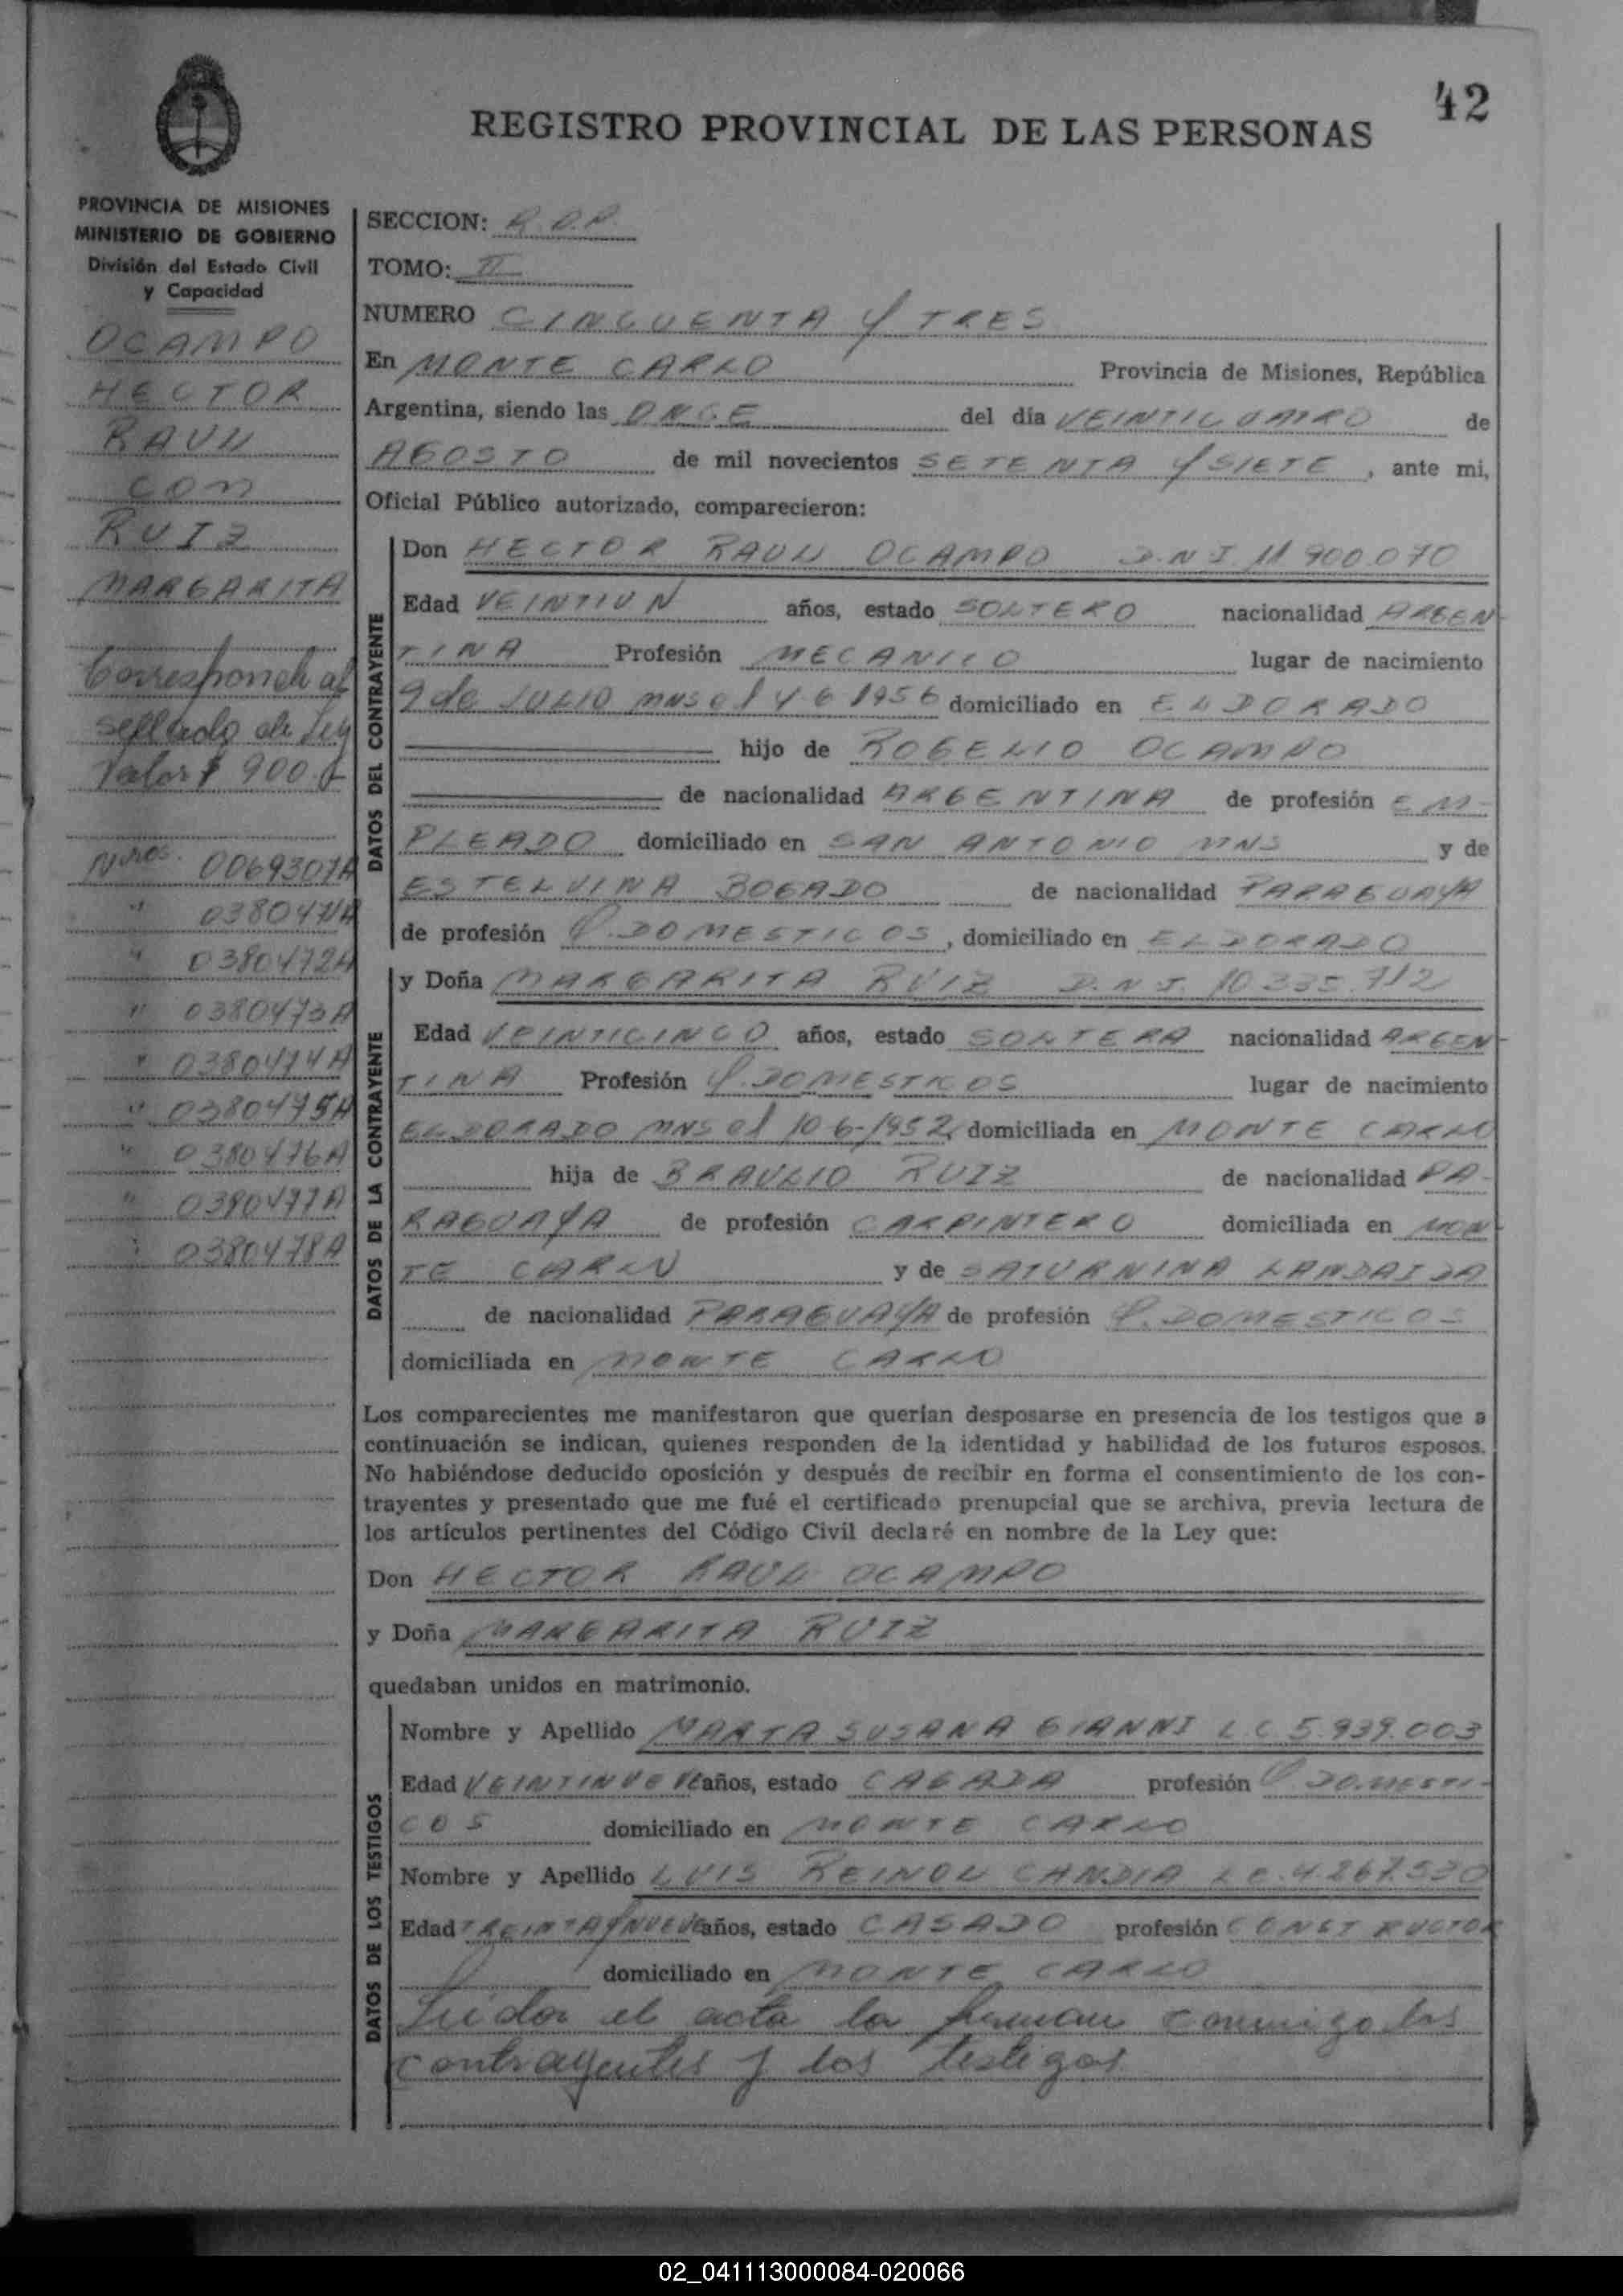 42
REGISTRO PROVINCIAL DE LAS PERSONAS
PROVINCIA DE MISIONES
MINISTERIO DE GOBIERNO
División del Estado Civil
y Capacidad
OCAMPO
HECTOR
RAUL
con
RUIZ
MARGARITA
Corresponde al
sellado de Ley
Valor $ 900.
Nros. 0069307A
" 0380471A
" 0380472A
" 0380473A
" 0380474A
" 0380475A
" 0380476A
" 0380477A
" 0380478A
SECCION: R.D.P.
TOMO: II
NUMERO CINCUENTA Y TRES
En MONTE CARLO Provincia de Misiones, República
Argentina, siendo las ONCE del día VEINTICUATRO de
AGOSTO de mil novecientos SETENTA Y SIETE, ante mi,
Oficial Público autorizado, comparecieron:
DATOS DEL CONTRAYENTE
Don HECTOR RAUL OCAMPO D.N.I. 11 900.070
Edad VEINTIUN años, estado SOLTERO nacionalidad ARGEN-
TINA Profesión MECANICO lugar de nacimiento
9 de JULIO MNS el 4-6 1956 domiciliado en ELDORADO
hijo de ROGELIO OCAMPO
de nacionalidad ARGENTINA de profesión EM-
PLEADO domiciliado en SAN ANTONIO MNS y de
ESTELVINA BOGADO de nacionalidad PARAGUAYA
de profesión Q. DOMESTICOS, domiciliado en ELDORADO
DATOS DE LA CONTRAYENTE
y Doña MARGARITA RUIZ D.N.I. 10.335.712
Edad VEINTICINCO años, estado SOLTERA nacionalidad ARGEN-
TINA Profesión Q. DOMESTICOS lugar de nacimiento
ELDORADO MNS el 10-6-1952, domiciliada en MONTE CARLO
hija de BRAULIO RUIZ de nacionalidad PA-
RAGUAYA de profesión CARPINTERO domiciliada en MON
TE CARLO y de SATURNINA LANDAIDA
de nacionalidad PARAGUAYA de profesión Q. DOMESTICOS
domiciliada en MONTE CARLO
Los comparecientes me manifestaron que querían desposarse en presencia de los testigos que a
continuación se indican, quienes responden de la identidad y habilidad de los futuros esposos.
No habiéndose deducido oposición y después de recibir en forma el consentimiento de los con-
trayentes y presentado que me fué el certificado prenupcial que se archiva, previa lectura de
los artículos pertinentes del Código Civil declaré en nombre de la Ley que:
Don HECTOR RAUL OCAMPO
y Doña MARGARITA RUIZ
quedaban unidos en matrimonio.
DATOS DE LOS TESTIGOS
Nombre y Apellido MARTA SUSANA GIANNI L C 5.939.003
Edad VEINTINUEVE años, estado CASADA profesión Q DOMESTI-
COS domiciliado en MONTE CARLO
Nombre y Apellido LUIS REINOL CANDIA L E. 4.267.530
Edad TREINTA Y NUEVE años, estado CASADO profesión CONSTRUCTOR
domiciliado en MONTE CARLO
Leída el acta la firman conmigo los
contrayentes y los testigos
02_041113000084-020066